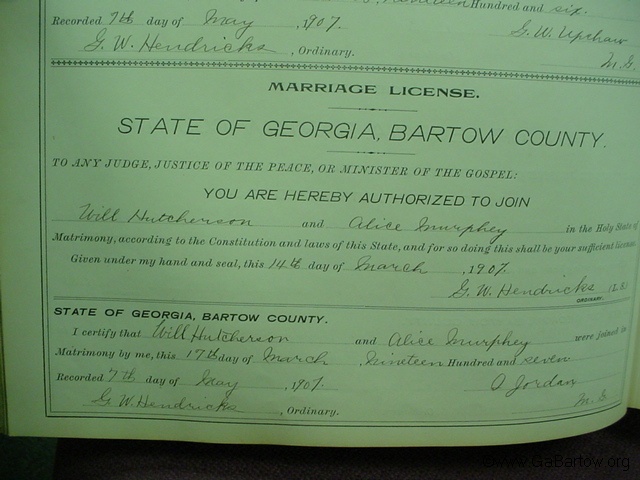 nineteen Hundred and six.
Recorded 7th day of May, 1907.
G. W. Upshaw
G. W. Hendricks, Ordinary.
M. G.
MARRIAGE LICENSE.
STATE OF GEORGIA, BARTOW COUNTY.
TO ANY JUDGE, JUSTICE OF THE PEACE, OR MINISTER OF THE GOSPEL:
YOU ARE HEREBY AUTHORIZED TO JOIN
Will Hutcherson and Alice Murphey in the Holy State of
Matrimony, according to the Constitution and laws of this State, and for so doing this shall be your sufficient license.
Given under my hand and seal, this 14th day of March, 1907.
G. W. Hendricks
ORDINARY.
STATE OF GEORGIA, BARTOW COUNTY.
I certify that Will Hutcherson and Alice Murphey were joined in
Matrimony by me, this 17th day of March, Nineteen Hundred and seven
Recorded 7th day of May, 1907.
Jordan
G. W. Hendricks, Ordinary.
M. G.
GaBartow.org